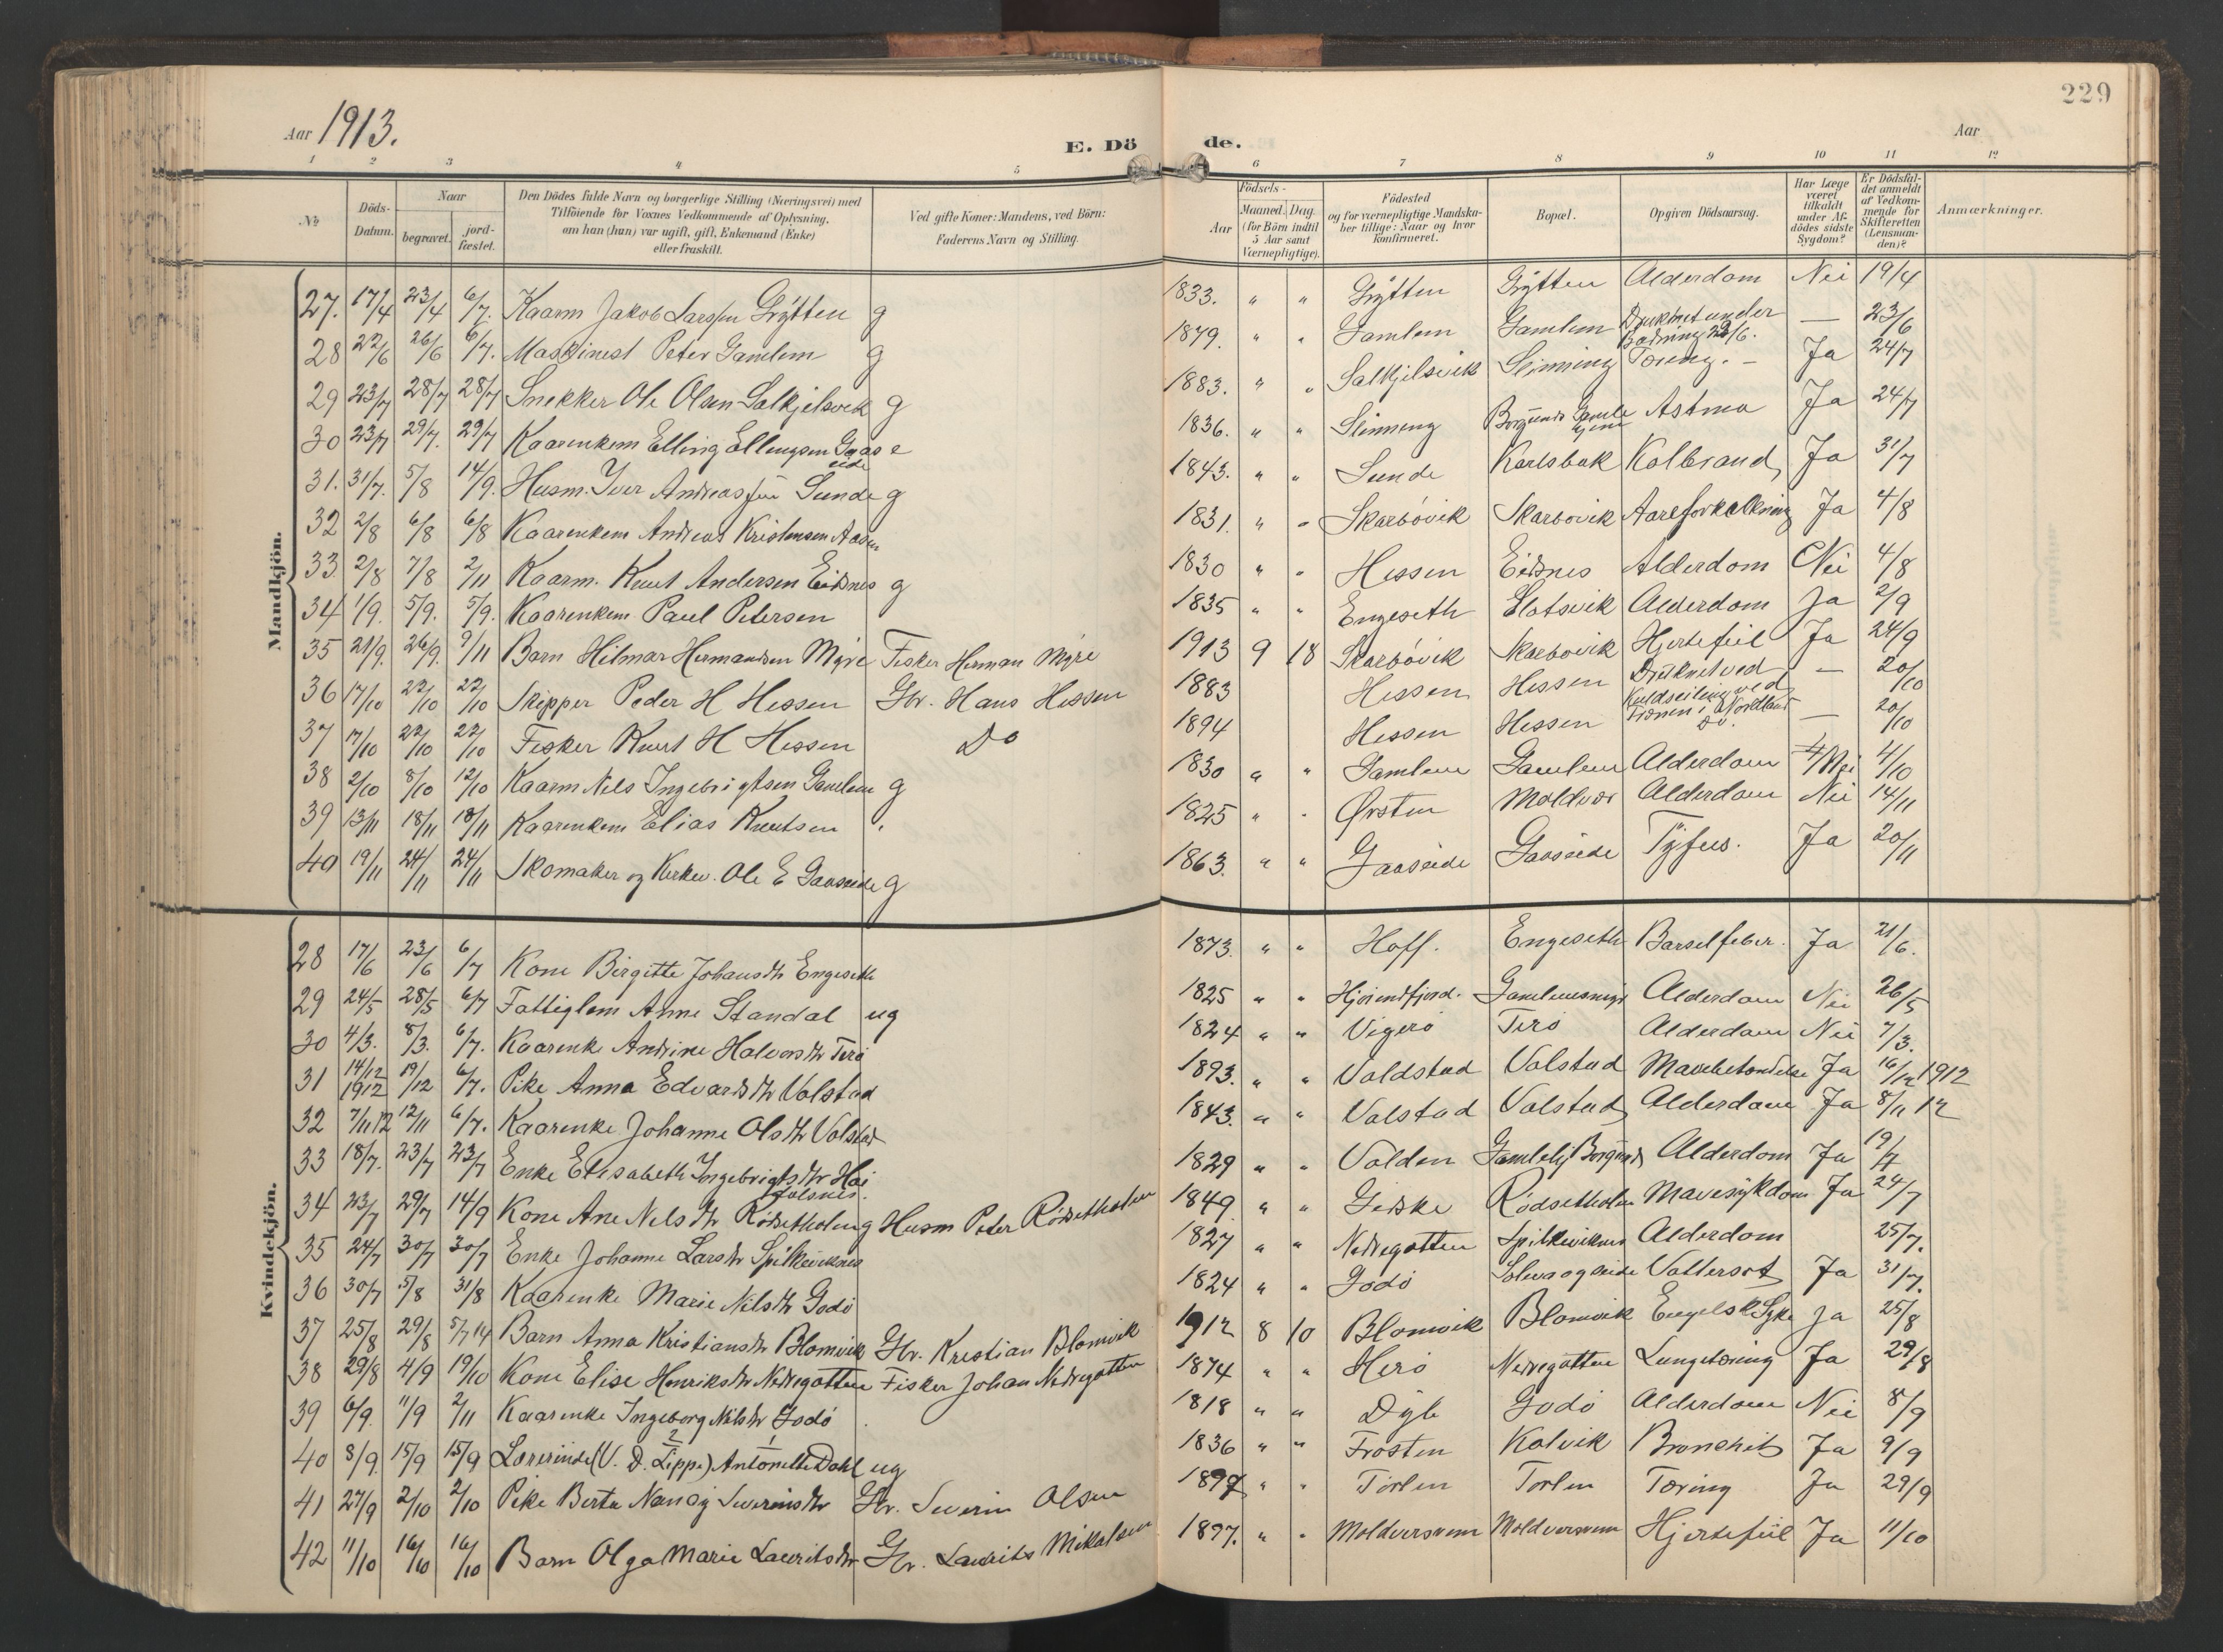 229
Aar 1913.
E. Döde.
Aar
1 2 3 4 5 6 7 8 9 10 11 12
No
Döds-Datum.
Naar
begravet.
jord-fæstet.
Den Dödes fulde Navn og borgerlige Stilling (Næringsvei) med
Tilföiende for Voxnes Vedkommende af Oplysning,
om han (hun) var ugift, gift, Enkemand (Enke)
eller fraskilt.
Ved gifte Koner: Mandens, ved Börn:
Faderens Navn og Stilling.
Födsels-
Aar
Maaned. Dag.
(for Börn indtil
5 Aar samt
Værnepligtige).
Födested
og for værnepligtige Mandska-
ber tillige: Naar og hvor
konfirmeret.
Bopæl.
Opgiven Dödsaarsag.
Har Læge
været
tilkaldt
under Af-
dödes sidste
Sygdom?
Er Dödsfal-
det anmeldt
af Vedkom-
mende for
Skifteretten
(Lensman-
den)?
Anmærkninger.
Mandkjön.
27. 17/4 23/4 6/7. Kaarm Jakob Larssen Grÿtten g 1833. " " Grÿtten Grÿtten Alderdom Nei 19/4
28 22/6 26/6 6/7. Maskinist Peter Gamlem g 1879. " " Gamlem Gamlem Druknet under Badning 22/6. — 23/6
29 23/7 28/7 28/7 Snekker Ole Olsen Salkjelsvik g 1883. " " Salkjelsvik Slinning Tæring. - Ja 24/7
30 23/7 29/7. 29/7 Kaarenkem Elling Ellingsen Gaaseide e 1836. " " Slinning Borgund Gamlehjem Astma Ja 24/7
31. 31/7. 5/8 14/9. Husm. Iver Andreassen Sunde g 1843. " " Sunde Karlsbak Kolbrand Ja 31/7
32 2/8 6/8 6/8 Kaarenkem Andreas Kristensen Aasen 1831. " " Skarbövik Skarbovik Aareforkalkning Ja 4/8
33 2/8 7/8 2/11 Kaarm. Knut Andersen Eidsnes g 1830 " " Hessen Eidsnes Alderdom Nei 4/8
34 1/9. 5/9. 5/9. Kaarenkem Paul Petersen 1835 " " Engeseth Slotsvik Alderdom Ja 2/9
35 21/9. 26/9. 9/11 Barn Hilmar Hermandsen Myre Fisker Herman Myre 1913 9 18 Skarbövik Skarbovik Hjertefeil Ja 24/9
36 17/10 22/10 22/10 Skipper Peder H Hessen Gbr. Hans Hessen 1883 Hessen Hessen Druknet ved Kuldseiling ved Trænen i Nordland — 20/10
37 17/10 22/10 22/10 Fisker Knut H Hessen Do 1894 Hessen Hessen Do. — 20/10
38 2/10 8/10 12/10 Kaarm Nils Ingebrigtsen Gamlem g 1830 " " Gamlem Gamlem Alderdom Nei 4/10
39 13/11 18/11 18/11 Kaarenkem Elias Knutsen " 1825 " " Ørsten Moldvær Alderdom Nei 14/11
40 19/11 24/11 24/11 Skomaker og Kirkev. Ole E Gaaseide g 1863. " " Gaaseide Gaaseide Tÿfus. Ja 20/11
Kvindekjön.
28 17/6 23/6 6/7 Kone Birgitte Johansdtr Engeseth 1873. " " Hoff. Engeseth Barselfeber. Ja 21/6.
29 24/5 28/5 6/7 Fattiglem Anne Standal ug 1825 " " Hjörendfjord. Gamlemsmyr Alderdom Nei 26/5
30 4/3. 8/3. 6/7. Kaarenke Andrine Halvorsdtr Terö 1824 " " Vigerö Terö Alderdom Nei 7/3.
31 14/12 1912 19/12 6/7. Pike Anna Edvardsdtr Valstad 1893. " " Valdstad Valstad Mavebetændelse Ja 16/12 1912
32 7/11 12 12/11 6/7. Kaarenke Johanne Olsdtr Valstad 1843. " " Valstad Valstad Alderdom Ja 8/11 12
33 18/7. 23/7 23/7 Enke Elisabeth Ingebrigtsdtr Hoi 1829 " " Volden Gamlehj Borgund Alderdom Ja 19/7
34 23/7 29/7 14/9 Kone Ane Nilsdtr Rödsetholm g Husm Peter Rödsetholm 1849. " " Giske Rödsetholm Mavesÿkdom Ja 24/7
35 24/7 30/7 30/7 Enke Johanne Larsdtr Spilkeviksnes 1827 " " Nedregotten Spilkeviksnes Alderdom 25/7.
36 30/7 5/8 31/8 Kaarenke Marie Nilsdtr Godö 1824 " " Godö Solevaagseide Vattersot Ja 31/7.
37 25/8 29/8 5/7 14 Barn Anna Kristiansdtr Blomvik Gbr. Kristian Blomvik 1912 8 10 Blomvik Blomvik Engelsk Syke Ja 25/8
38 29/8 4/9 19/10 Kone Elise Henriksdtr Nedregotten Fisker Johan Nedregotten 1874 " " Herö Nedregotten Lungetæring Ja 29/8
39 6/9. 11/9 2/11 Kaarenke Ingeborg Nilsdtr Godö 1818 " " Dyb Godö Alderdom Nei 8/9
40 8/9. 15/9 15/9 Lærerinde (V. D. Lippe) Antonette Dahl ug 1836 " " Frosten Kalvik Bronchit Ja 9/9
41 27/9 2/10 2/10 Pike Berta Nancy Severinsdtr Gbr. Severin Olsen 1897 " " Torlen Torlen Tæring Ja 29/9
42 11/10 16/10 16/10 Barn Olga Marie Lauritsdtr Gbr. Laurits Mikalsen 1897. " " Moldversvem Moldversvem Hjertefeil Ja 11/10